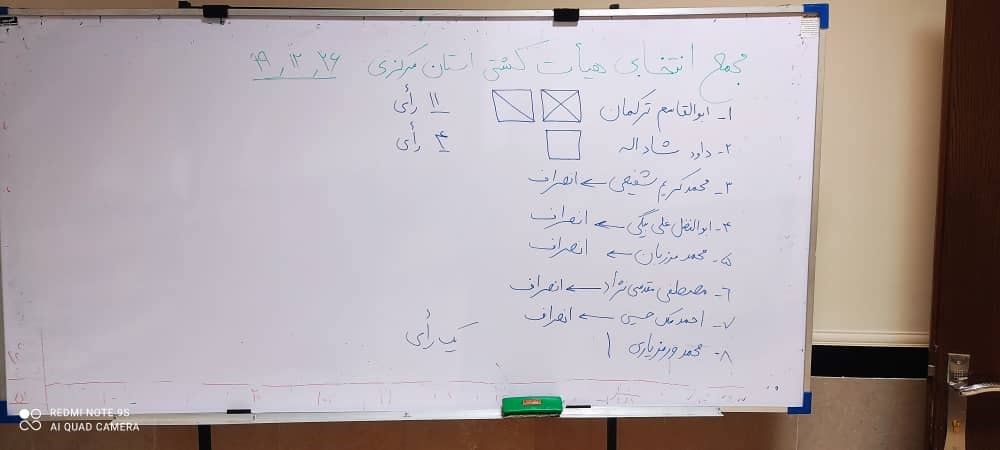 مجمع انتخابی هیأت کشتی استان مرکزی ۹۹٫۱۲٫۲۶
۱- ابوالقاسم ترکمان ۱۱ رأی
۲- داود شاداله ۴ رأی
۳- محمد کریم شفیعی ← انصراف
۴- ابوالفضل علی بیگی ← انصراف
۵- محمد مرزبان ← انصراف
۶- مصطفی مقدسی نژاد ← انصراف
۷- احمد ملک حسینی ← انصراف
۸- محمد ورمزیاری ۱ یک رأی
REDMI NOTE 9S
AI QUAD CAMERA